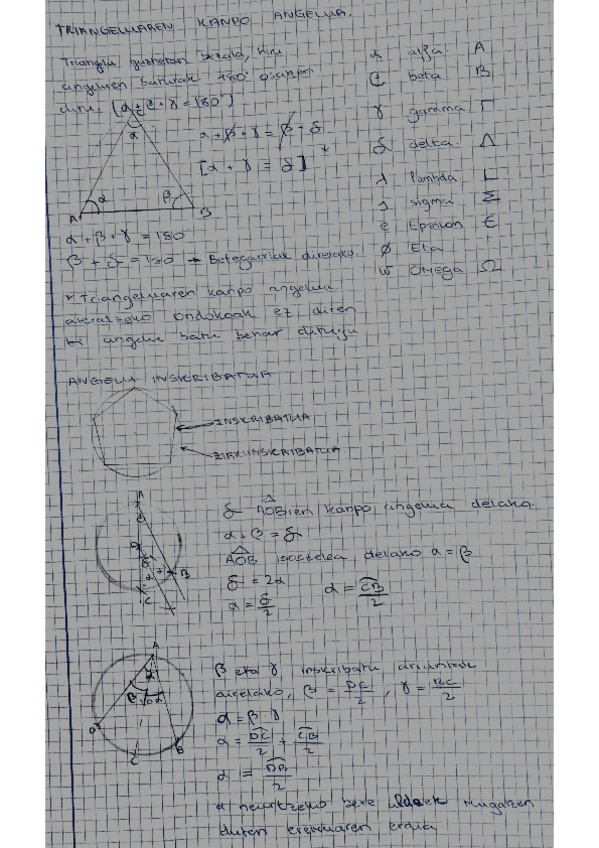 TRIANGELUAREN KANPO ANGELUA.
Triangelu guztietan bezala, hiru
angeluen baturak 180° osatzen
ditu. [α + β + γ = 180°]
α + β + γ = β + δ
[α + γ = δ] *
α
α
β
A
B
α + β + γ = 180
β + δ = 180 → Betegarriak direlako.
* Triangeluaren kanpo angelua
ateratzeko ondokoak ez diren
bi angelu batu behar ditugu
α alfa A
β beta B
γ gamma Γ
δ delta Δ
λ lambda L
sigma Σ
e Epsilon Є
ø Eta
w Omega Ω
ANGELU INSKRIBATUA
INSKRIBATUA
ZIRKUNSKRIBATUA
A
B
C
δ AOBren kanpo angelua delako.
α + β = δ
AOB isoszelea delako α = β
δ = 2α
α = δ/2
α = CB/2
A
α
β
D
C
B
β eta γ inskribatu
direlako, β = DC/2 , γ = BC/2
α = β γ
α = DC/2 + CB/2
α = DB/2
α neurtzeko bere aldeek mugatzen
duten erdia